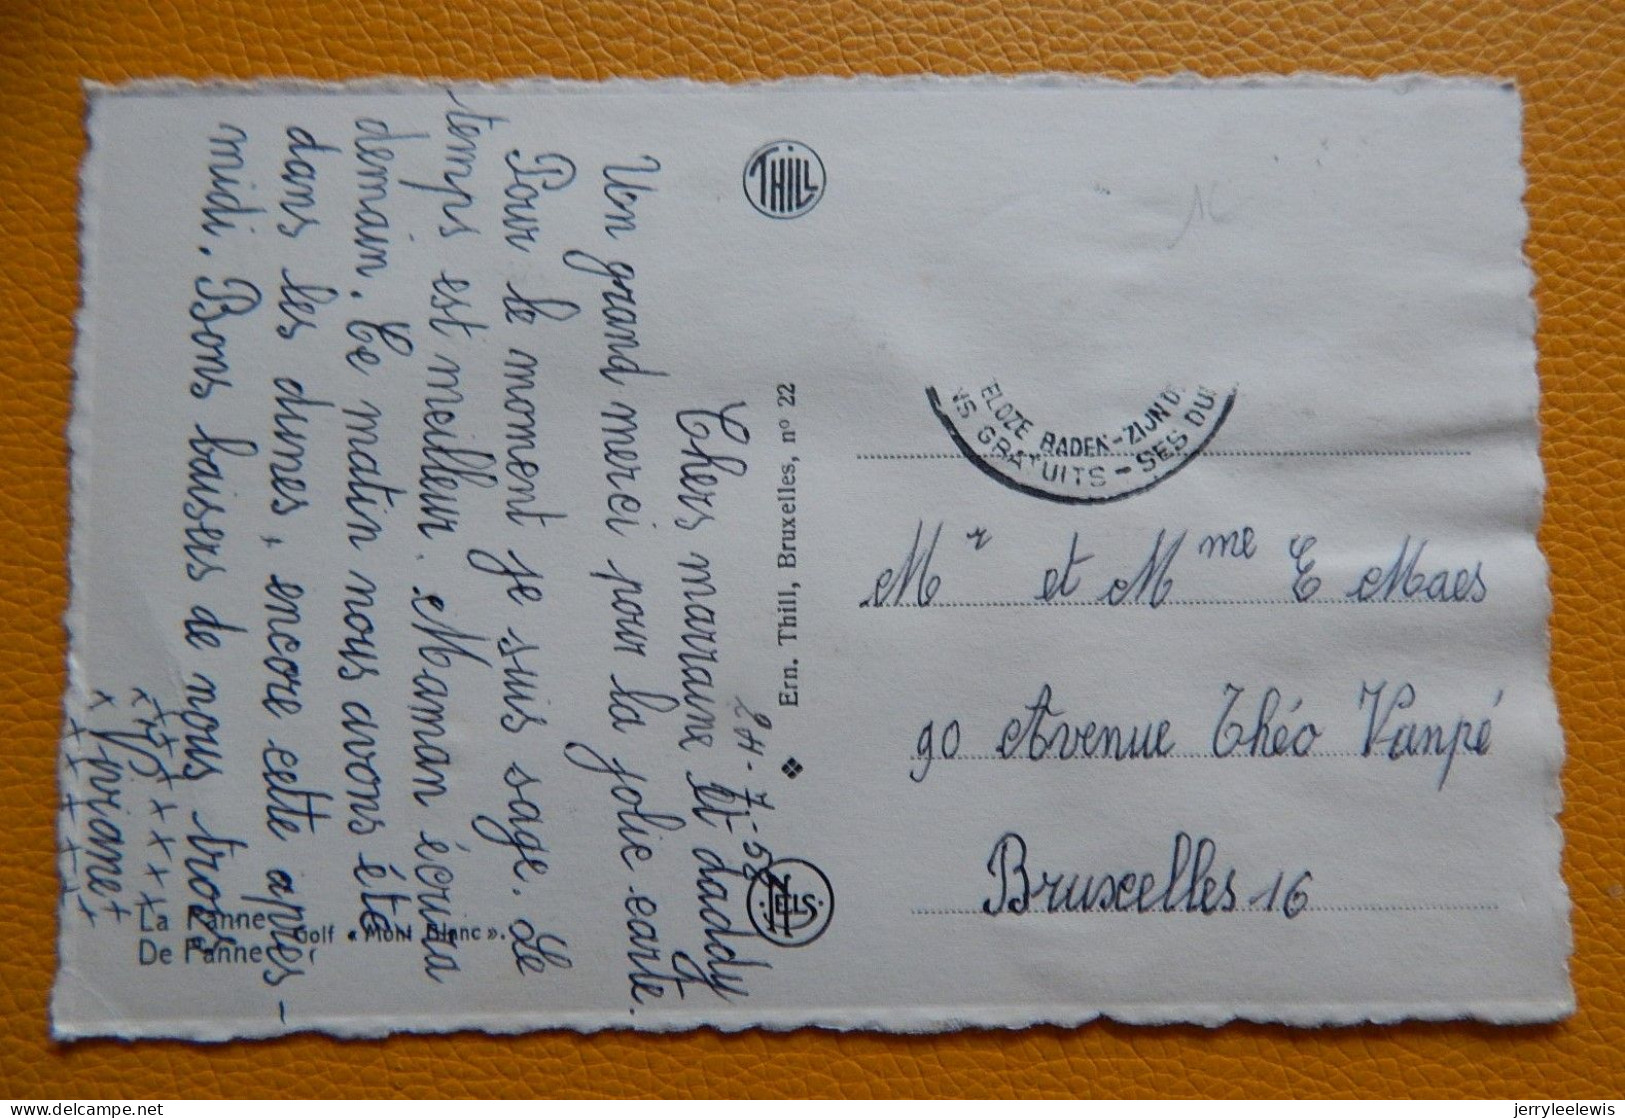 24-7-58
Chers marraine et daddy
Un grand merci pour la jolie carte.
Pour le moment je suis sage. Le
temps est meilleur. Maman écrira
demain. Ce matin nous avons été
dans les dunes, encore cette après-
midi. Bons baisers de nous trois
La Panne
De Panne
Golf « Mont Blanc ».
THILL
Ern. Thill, Bruxelles, nº 22
NELS
ELOZE BADEN-ZIJN D
NS GRATUITS - SES DU
Mr et Mme E Maes
90 Avenue Théo Vanpé
Bruxelles 16
jerryleelewis